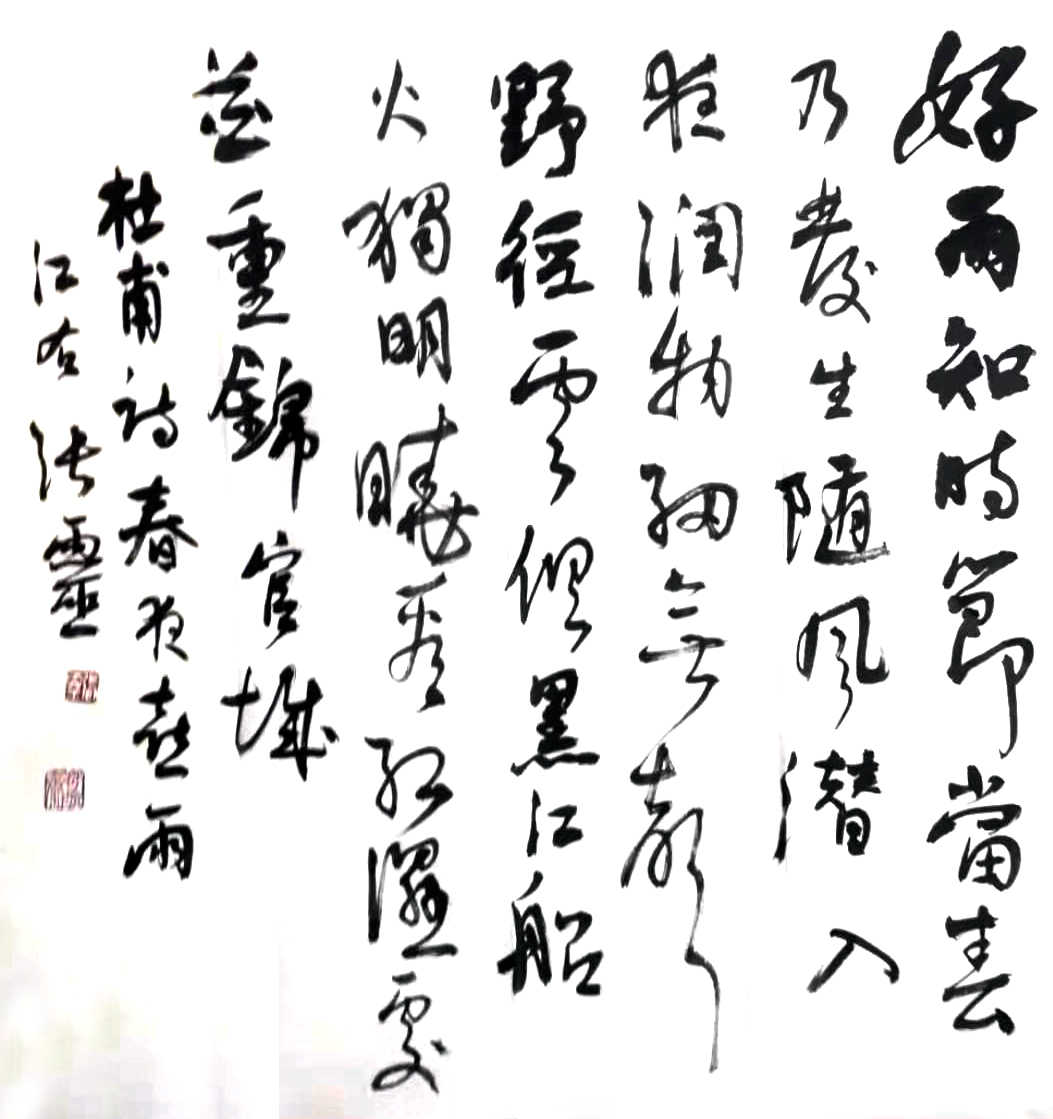 好雨知時節當春
乃發生随風潛入
夜润物細無聲
野徑雲俱黑江船
火獨明曉看紅濕處
花重錦官城
杜甫詩春夜喜雨
江右 张靈